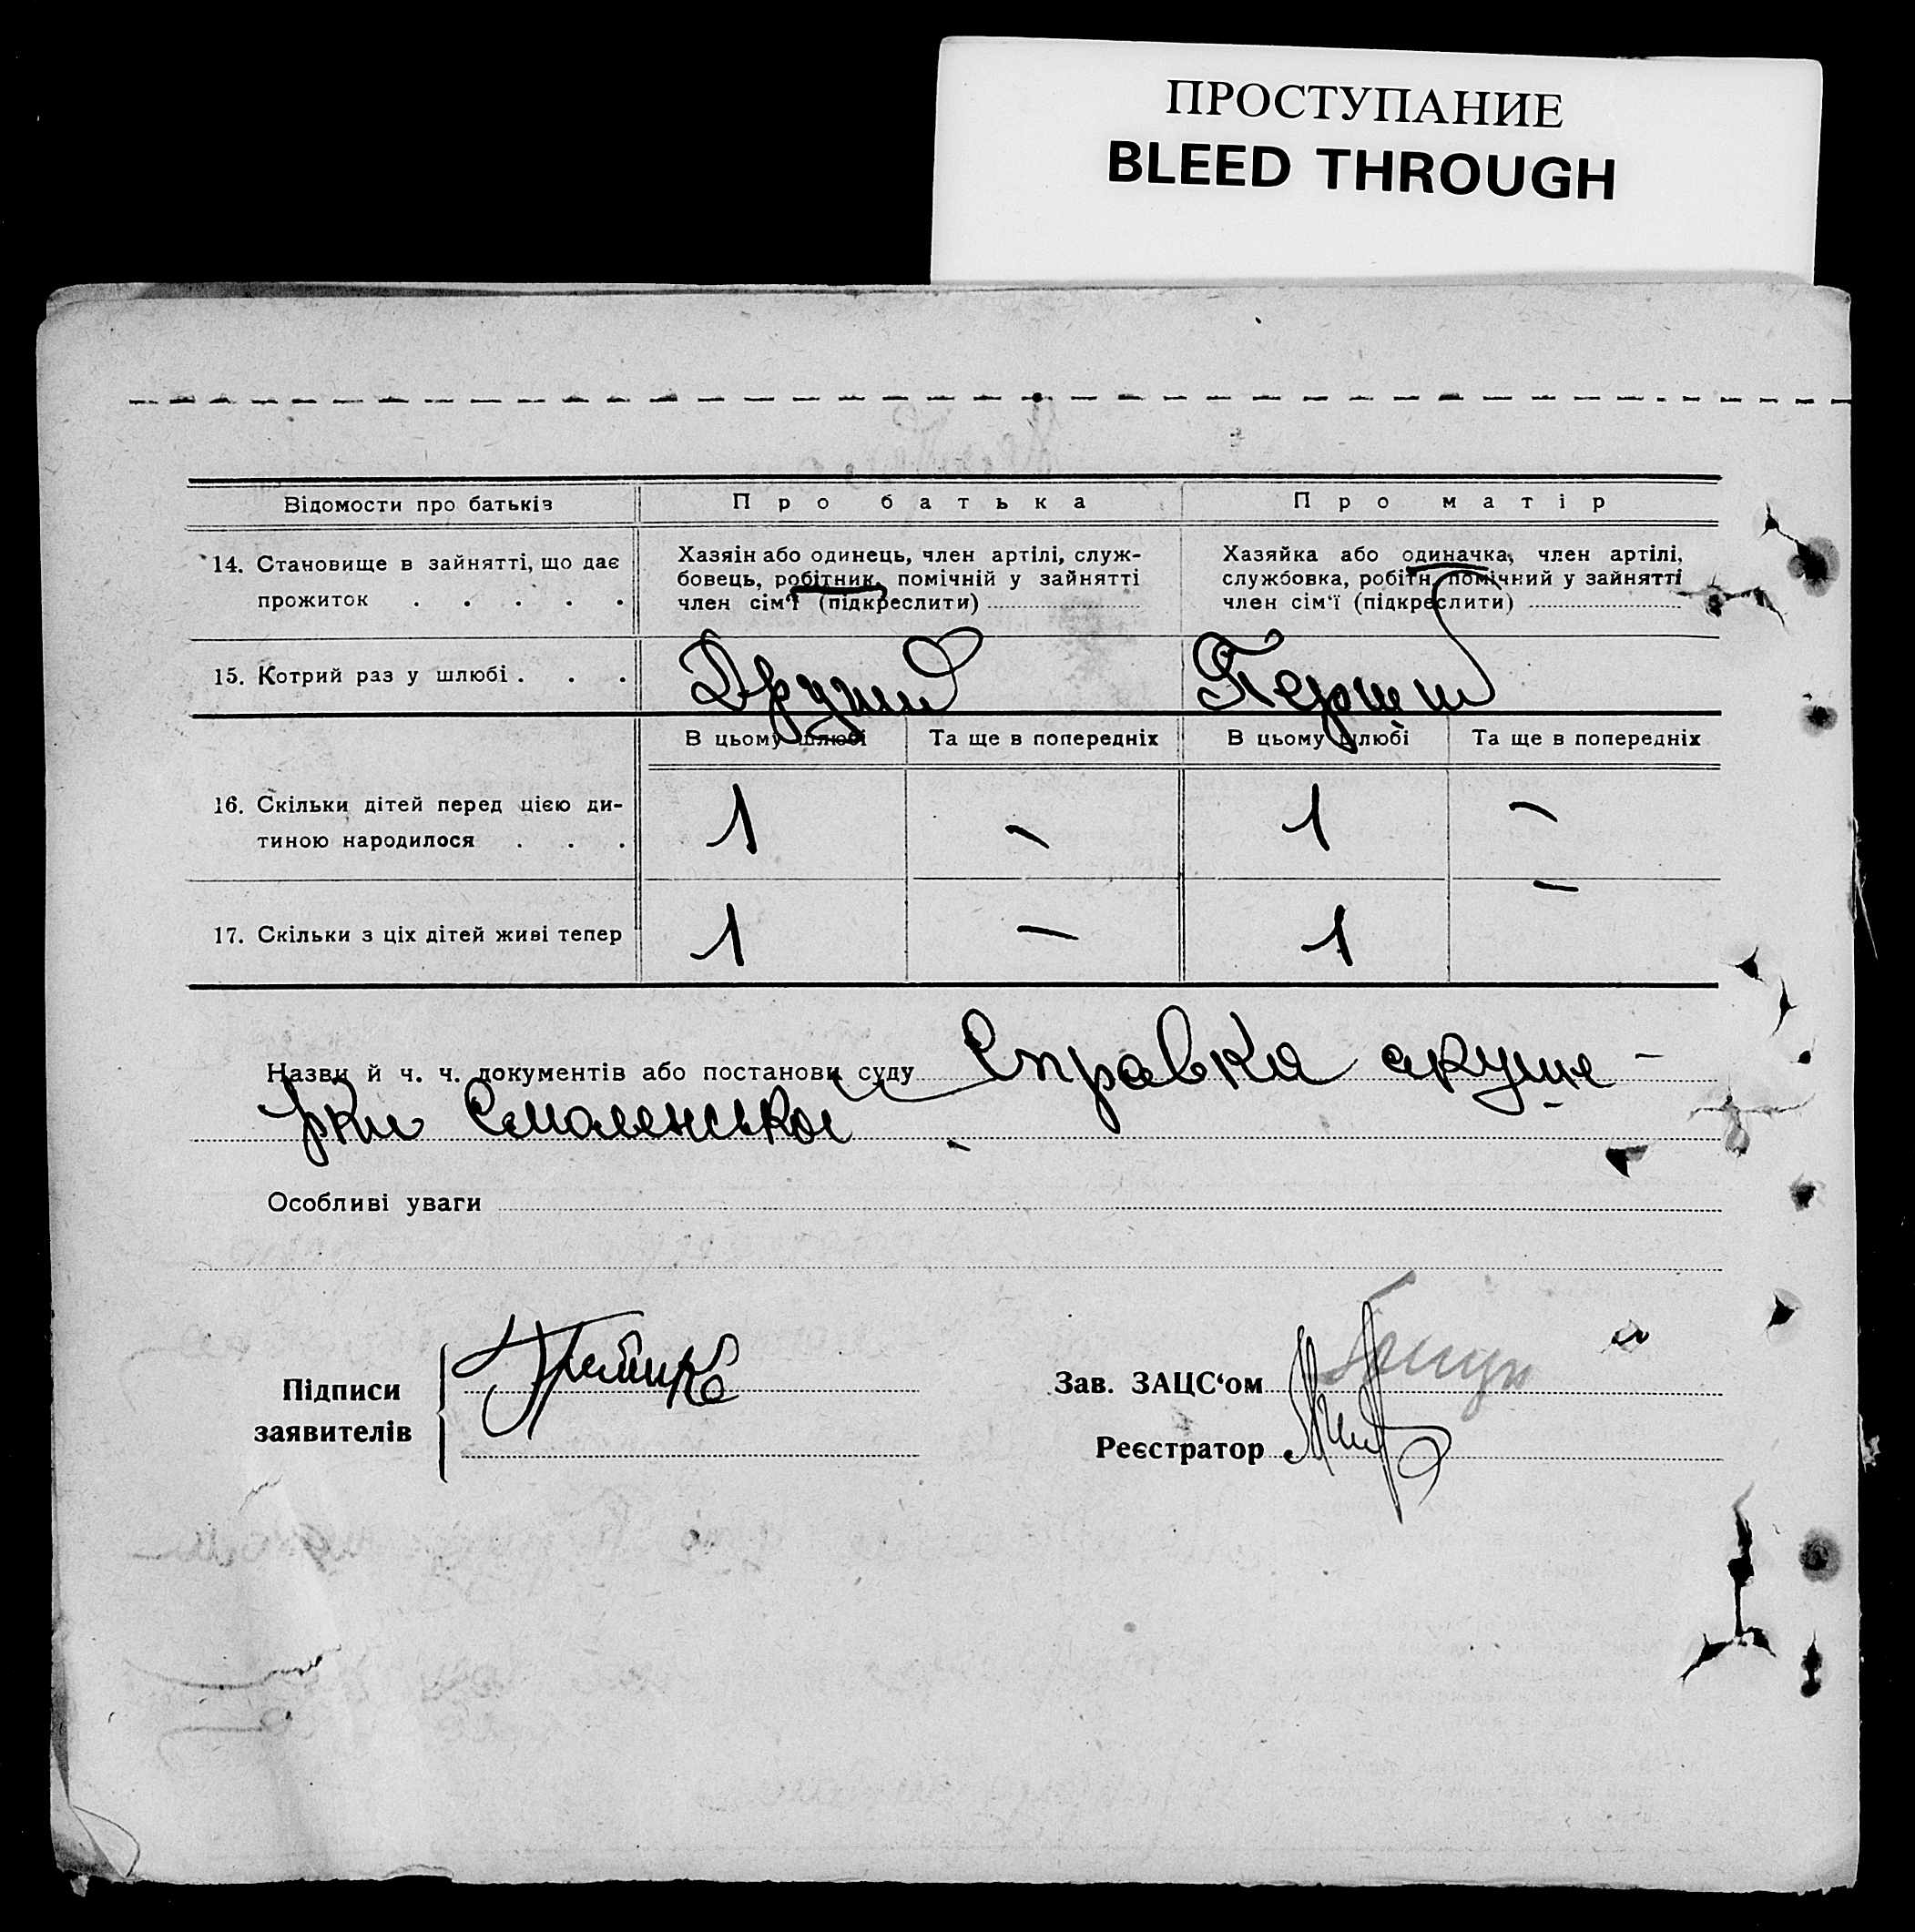 ПРОСТУПАНИЕ
BLEED THROUGH
Відомости про батьків
П р о б а т ь к а
П р о м а т і р
14. Становище в зайнятті, що дає
прожиток . . . . .
Хазяін або одинець, член артілі, служ-
бовець, робітник, помічній у зайнятті
член сім'ї (підкреслити)
Хазяйка або одиначка, член артілі,
службовка, робітн. помічний у зайнятті
член сім'ї (підкреслити)
15. Котрий раз у шлюбі . . .
Другий
Перший
В цьому шлюбі
Та ще в попередніх
В цьому шлюбі
Та ще в попередніх
16. Скільки дітей перед цією ди-
тиною народилося . . .
1 – 1 –
17. Скільки з ціх дітей живі тепер
1 – 1 –
Назви й ч. ч. документів або постанови суду Справка акуше-
рки Смоленської
Особливі уваги
Підписи
заявителів
Зав. ЗАЦС‘ом
Реєстратор